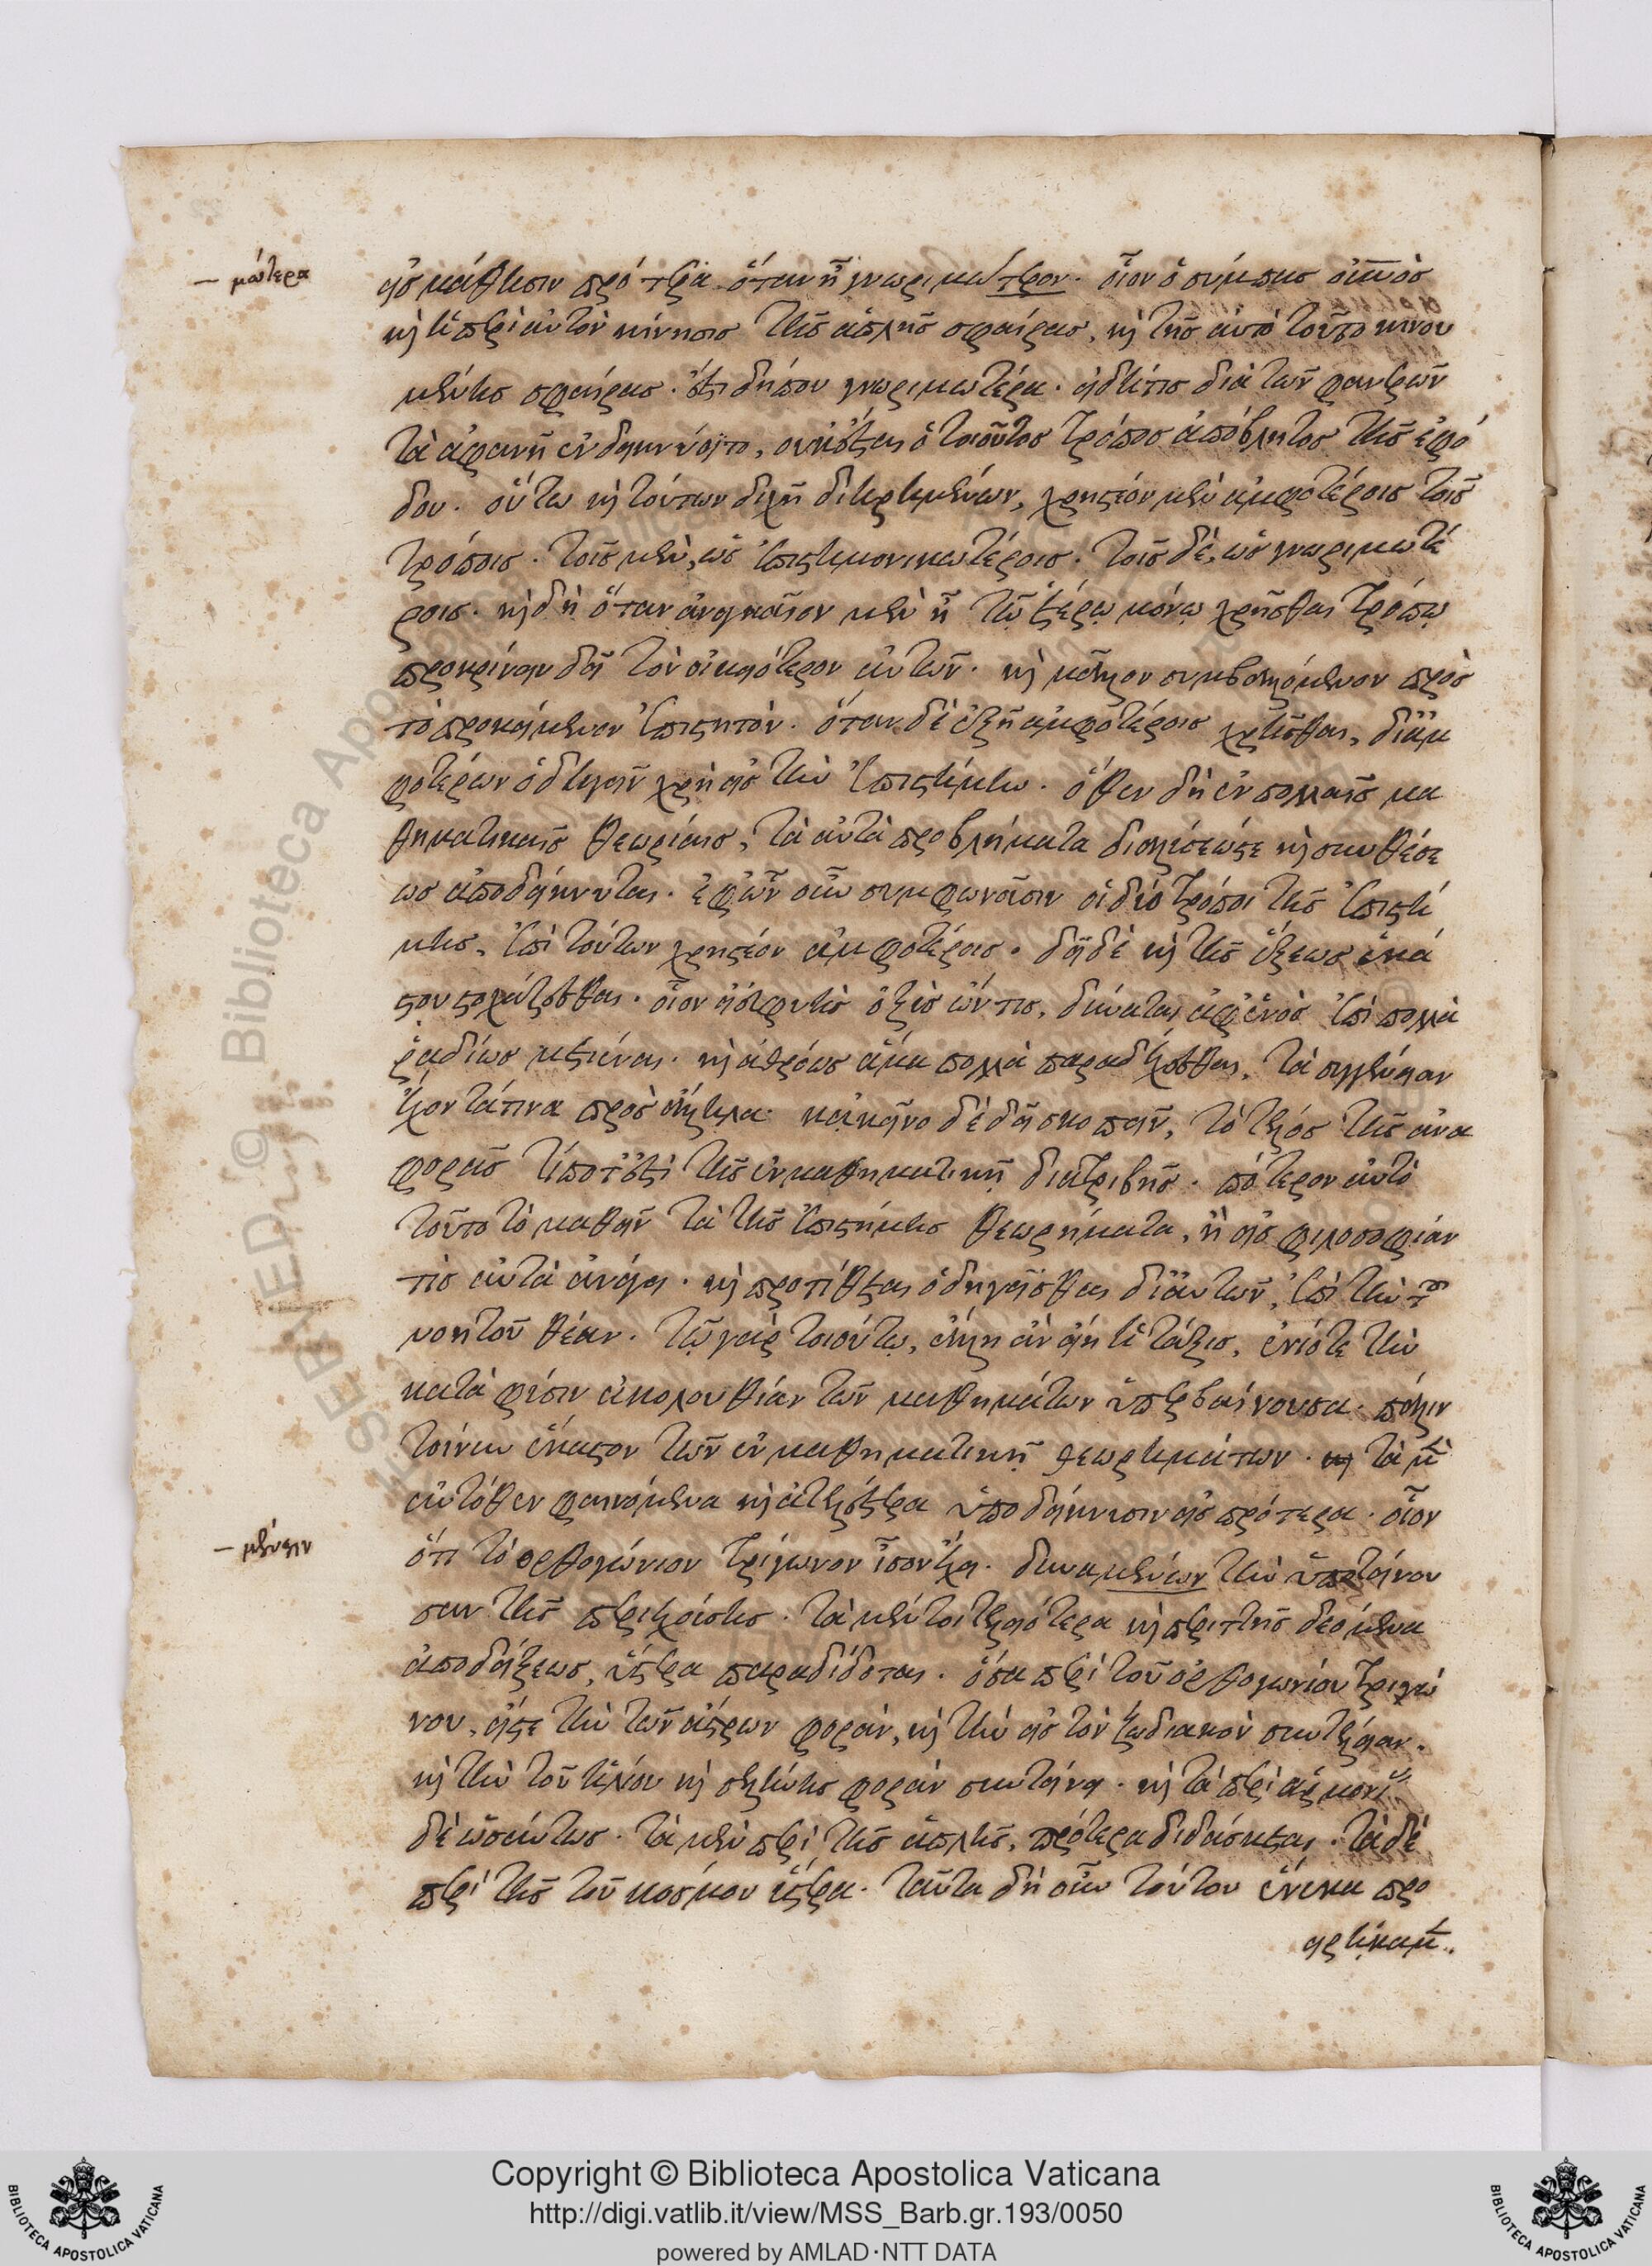 – μώτερα
εἰς μάθησιν πρότερα ὅταν ᾖ γνωριμώτερον. οἷον ὁ σύμπας οὐρανὸς
καὶ ἡ περὶ αὐτὸν κίνησις τῆς ἁπλῆς σφαίρας, καὶ τῆς αὐτὸ τοῦτο κινου
μένης σφαίρας. ἐστὶ δήπου γνωριμωτέρα. εἰ δή τις διὰ τῶν φανερῶν
τὰ ἀφανῆ ἐνδεικνύοιτο, οὐκ ἔσται ὁ τοιοῦτος τρόπος ἀπόβλητος τῆς ἐφό
δου. οὕτω καὶ τούτων διχῆ διῃρημένων, χρηστέον μὲν ἀμφοτέροις τοῖς
τρόποις. τοῖς μὲν, ὡς ἐπιστημονικωτέροις. τοῖς δὲ, ὡς γνωριμωτέ
ροις. καὶ δὴ ὅταν ἀναγκαῖον μὲν ᾖ τῷ ἑτέρῳ μόνῳ χρῆσθαι τρόπῳ
προκρίνειν δεῖ τὸν οἰκειότερον αὐτῶν. καὶ μᾶλλον συμβαλλόμενον πρὸς
τὸ προκείμενον ἐπιζητόν. ὅταν δὲ ἐξῇ ἀμφοτέροις χρῆσθαι, δι' ἀμ
φοτέρων ὁδηγεῖν χρὴ εἰς τὴν ἐπιστήμην. ὅθεν δὴ ἐν πολλαῖς μα
θηματικαῖς θεωρίαις, τὰ αὐτὰ προβλήματα δι' ἀλύσεώς τε καὶ συνθέσε
ως ἀποδείκνυται. ἐφ' ὧν οὖν συμφωνοῦσιν οἱ δύο τρόποι τῆς ἐπιστή
μης, ἐπὶ τούτων χρηστέον ἀμφοτέροις. δεῖ δὲ καὶ τῆς ἕξεως ἑκά
στου στοχάζεσθαι. οἷον εἰ εὐφυὴς ὀξὺς ὤν τις, δύναται ἀφ' ἑνὸς ἐπὶ πολλὰ
ῥαδίως μετιέναι. καὶ ἀθρόως ἅμα πολλὰ παραδέχεσθαι, τὰ συγγένειαν
ἔχοντά τινα πρὸς ἄλληλα. κἀκεῖνο δὲ δεῖ σκοπεῖν, τὸ τέλος τῆς ἀνα
φορᾶς τί ποτ' ἐστὶ τῆς ἐν μαθηματικῇ διατριβῆς. πότερον αὐτὸ
τοῦτο τὸ μαθεῖν τὰ τῆς ἐπιστήμης θεωρήματα, ἢ εἰς φιλοσοφίαν
τὶς αὐτὰ ἀνάγει. καὶ προτίθεται ὁδηγεῖσθαι δι' αὐτῶν, ἐπὶ τὴν τοῦ
νοητοῦ θέαν. τῷ γὰρ τοιούτῳ, ἄλλη ἂν εἴη ἡ τάξις, ἐνίοτε τὴν
κατὰ φύσιν ἀκολουθίαν τῶν μαθημάτων ὑπερβαίνουσα. πάλιν
τοίνυν ἕκαστον τῶν ἐν μαθηματικῇ θεωρημάτων. τὰ μὲν
αὐτόθεν φαινόμενα καὶ ἀτελέστερα ὑποδείκνυσιν εἰς πρότερα. οἷον
– μένην
ὅτι τὸ ὀρθογώνιον τρίγωνον ἴσον ἔχει. δυναμένων τὴν ὑποτείνου
σαν τῆς περιεχούσης. τὰ μέντοι τελεώτερα καὶ περιττῆς δεόμενα
ἀποδείξεως, ὕστερα παραδίδοται. ὅσα περὶ τοῦ ὀρθογωνίου τριγώ
νου, εἴς τε τὴν τῶν ἄστρων φορὰν, καὶ τὴν εἰς τὸν ζωδιακὸν συντέλειαν.
καὶ τὴν τοῦ ἡλίου καὶ σελήνης φορὰν συντείνει. καὶ τὰ περὶ ἁρμονι
δὲ ὡσαύτως. τὰ μὲν περὶ τῆς ἁπλῆς, πρότερα διδάσκεται. τὰ δὲ
περὶ τῆς τοῦ κόσμου ὕστερα. ταῦτα δὴ οὖν τούτου ἕνεκα προ
ειρήκαμεν.
Copyright © Biblioteca Apostolica Vaticana
http://digi.vatlib.it/view/MSS_Barb.gr.193/0050
powered by AMLAD·NTT DATA
BIBLIOTECA APOSTOLICA VATICANA
BIBLIOTECA APOSTOLICA VATICANA